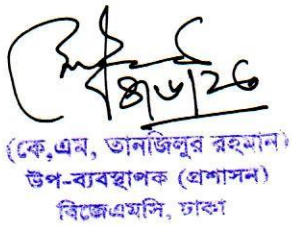 (কে,এম, তানজিলুর রহমান)
উপ-ব্যবস্থাপক (প্রশাসন)
বিজেএমসি, ঢাকা